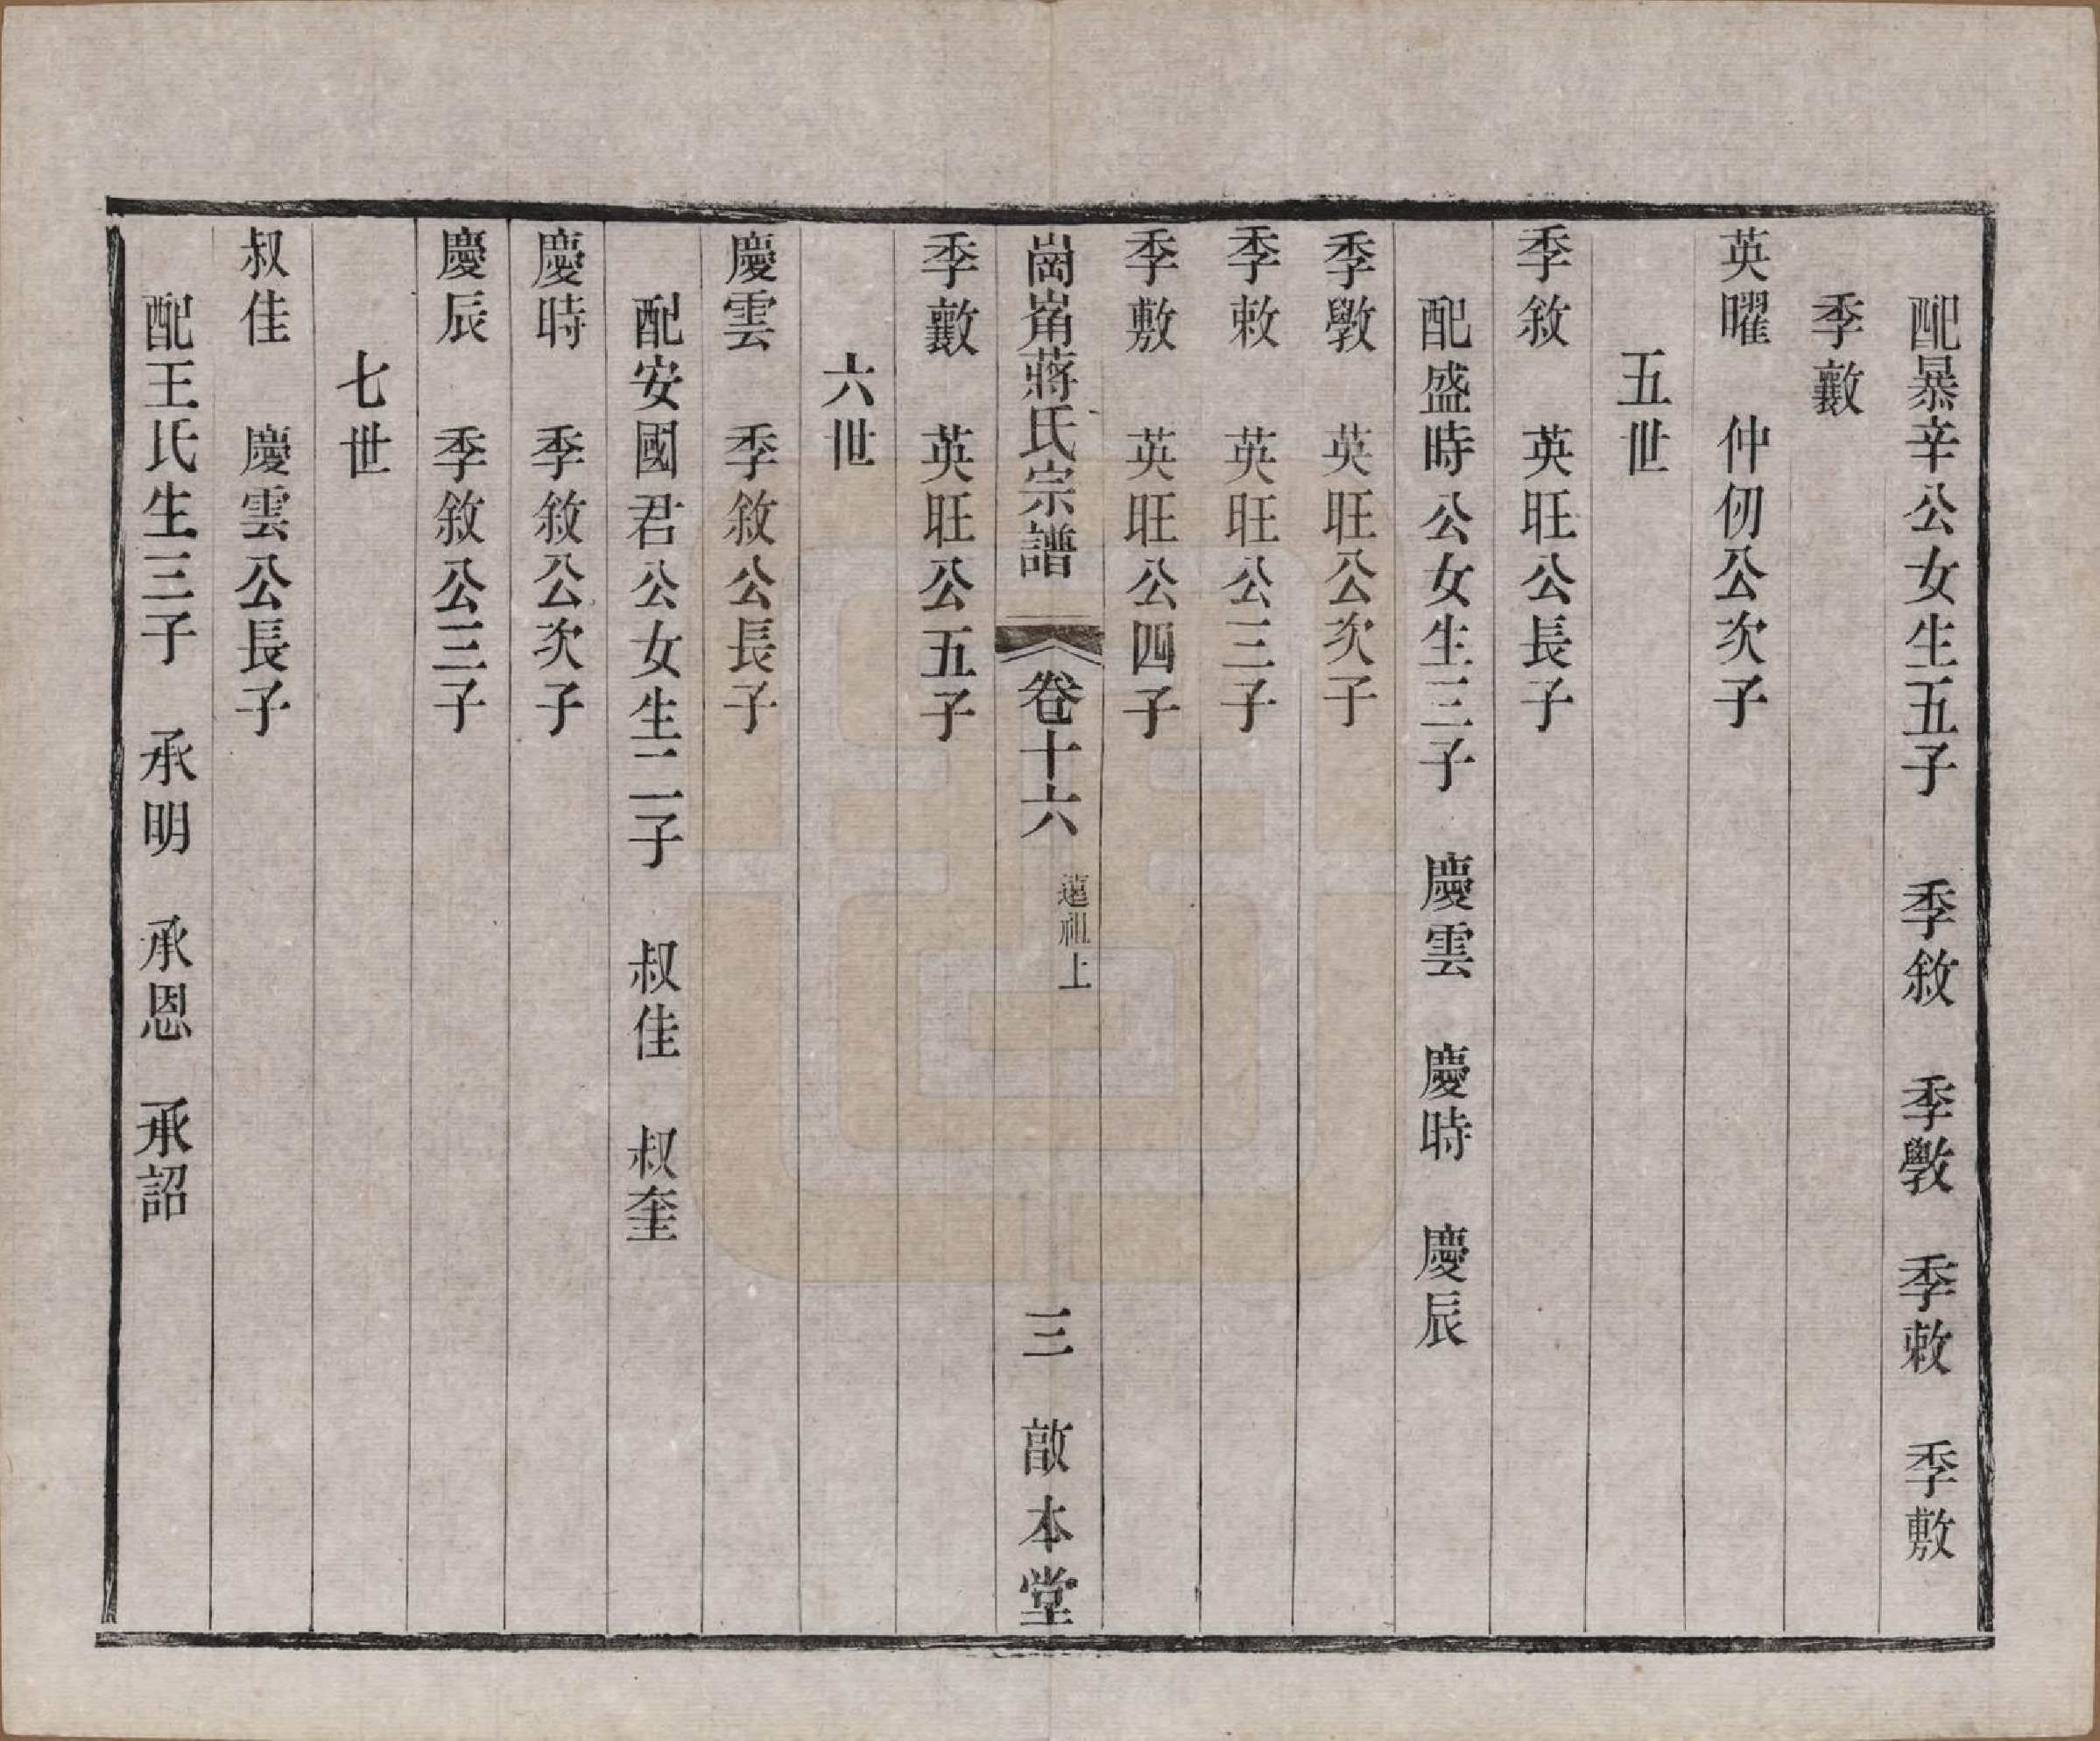 配暴辛公女生五子　季敘　季斆　季敕　季敷
季斁
英曜　仲仞公次子
五世
季敘　英旺公長子
配盛時公女生三子　慶雲　慶時　慶辰
季斆　英旺公次子
季敕　英旺公三子
季敷　英旺公四子
崗崙蔣氏宗譜　卷十六　遠祖上　三　敨本堂
季斁　英旺公五子
六世
慶雲　季敘公長子
配安國君公女生二子　叔佳　叔奎
慶時　季敘公次子
慶辰　季敘公三子
七世
叔佳　慶雲公長子
配王氏生三子　承明　承恩　承詔